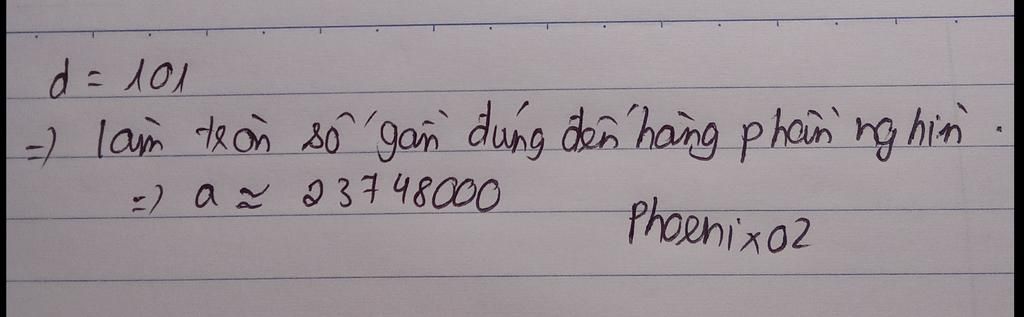 d = 101
=) làm tròn số gần đúng đến hàng phần nghìn.
=) a ≈ 23748000
Phoenix02